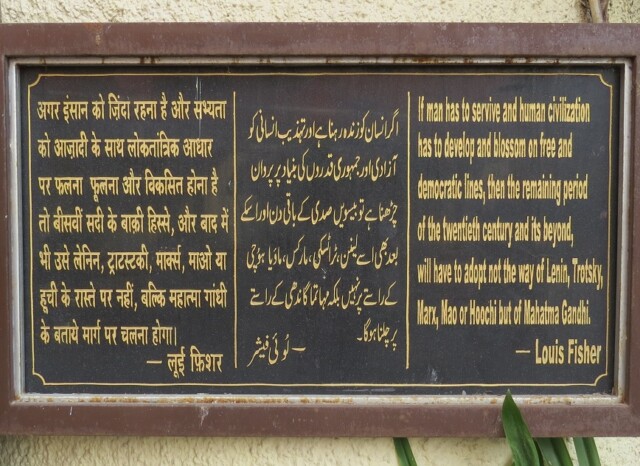 अगर इंसान को ज़िंदा रहना है और सभ्यता
को आज़ादी के साथ लोकतांत्रिक आधार
पर फलना फूलना और विकसित होना है
तो बीसवीं सदी के बाक़ी हिस्से, और बाद में
भी उसे लेनिन, ट्राटस्की, मार्क्स, माओ या
हूची के रास्ते पर नहीं, बल्कि महात्मा गांधी
के बताये मार्ग पर चलना होगा।
— लूई फ़िशर
اگر انسان کو زندہ رہنا ہے اور تہذیب انسانی کو
آزادی اور جمہوری قدروں کی بنیاد پر پروان
چڑھنا ہے تو بیسویں صدی کے باقی دن اور اسکے
بعد بھی اسے لینن، ٹراٹسکی، مارکس، ماؤ یا ہوچی
کے راستے پر نہیں بلکہ مہاتما گاندھی کے راستے
پر چلنا ہوگا۔
— لوئی فیشر
If man has to servive and human civilization
has to develop and blossom on free and
democratic lines, then the remaining period
of the twentieth century and its beyond,
will have to adopt not the way of Lenin, Trotsky,
Marx, Mao or Hoochi but of Mahatma Gandhi.
— Louis Fisher